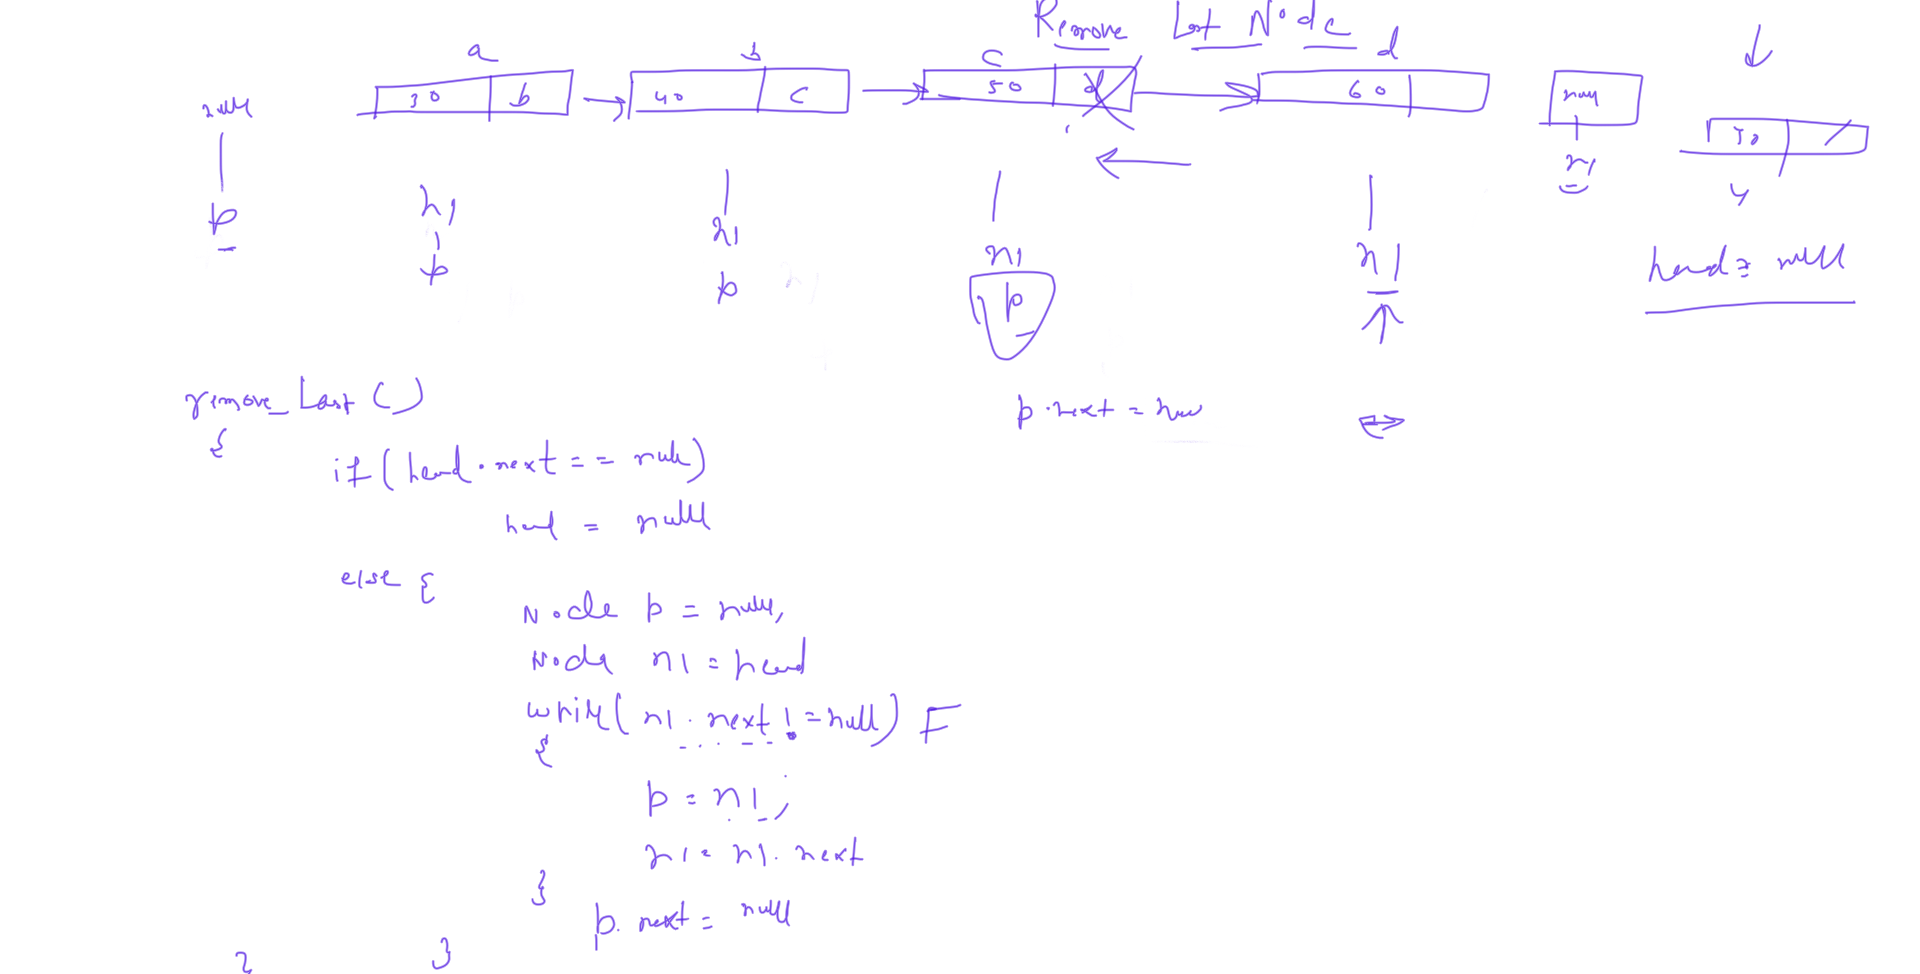 Remove Last Node
a b c d
null 30 b 40 c 50 d 60 null
n1 50
p n1 n1 n1 n1 y
p p p head = null
remove_Last ( ) p.next = null
{
if ( head.next == null )
head = null
else {
Node p = null,
Node n1 = head
while ( n1.next != null ) F
{
p = n1;
n1 = n1.next
}
p.next = null
}
}